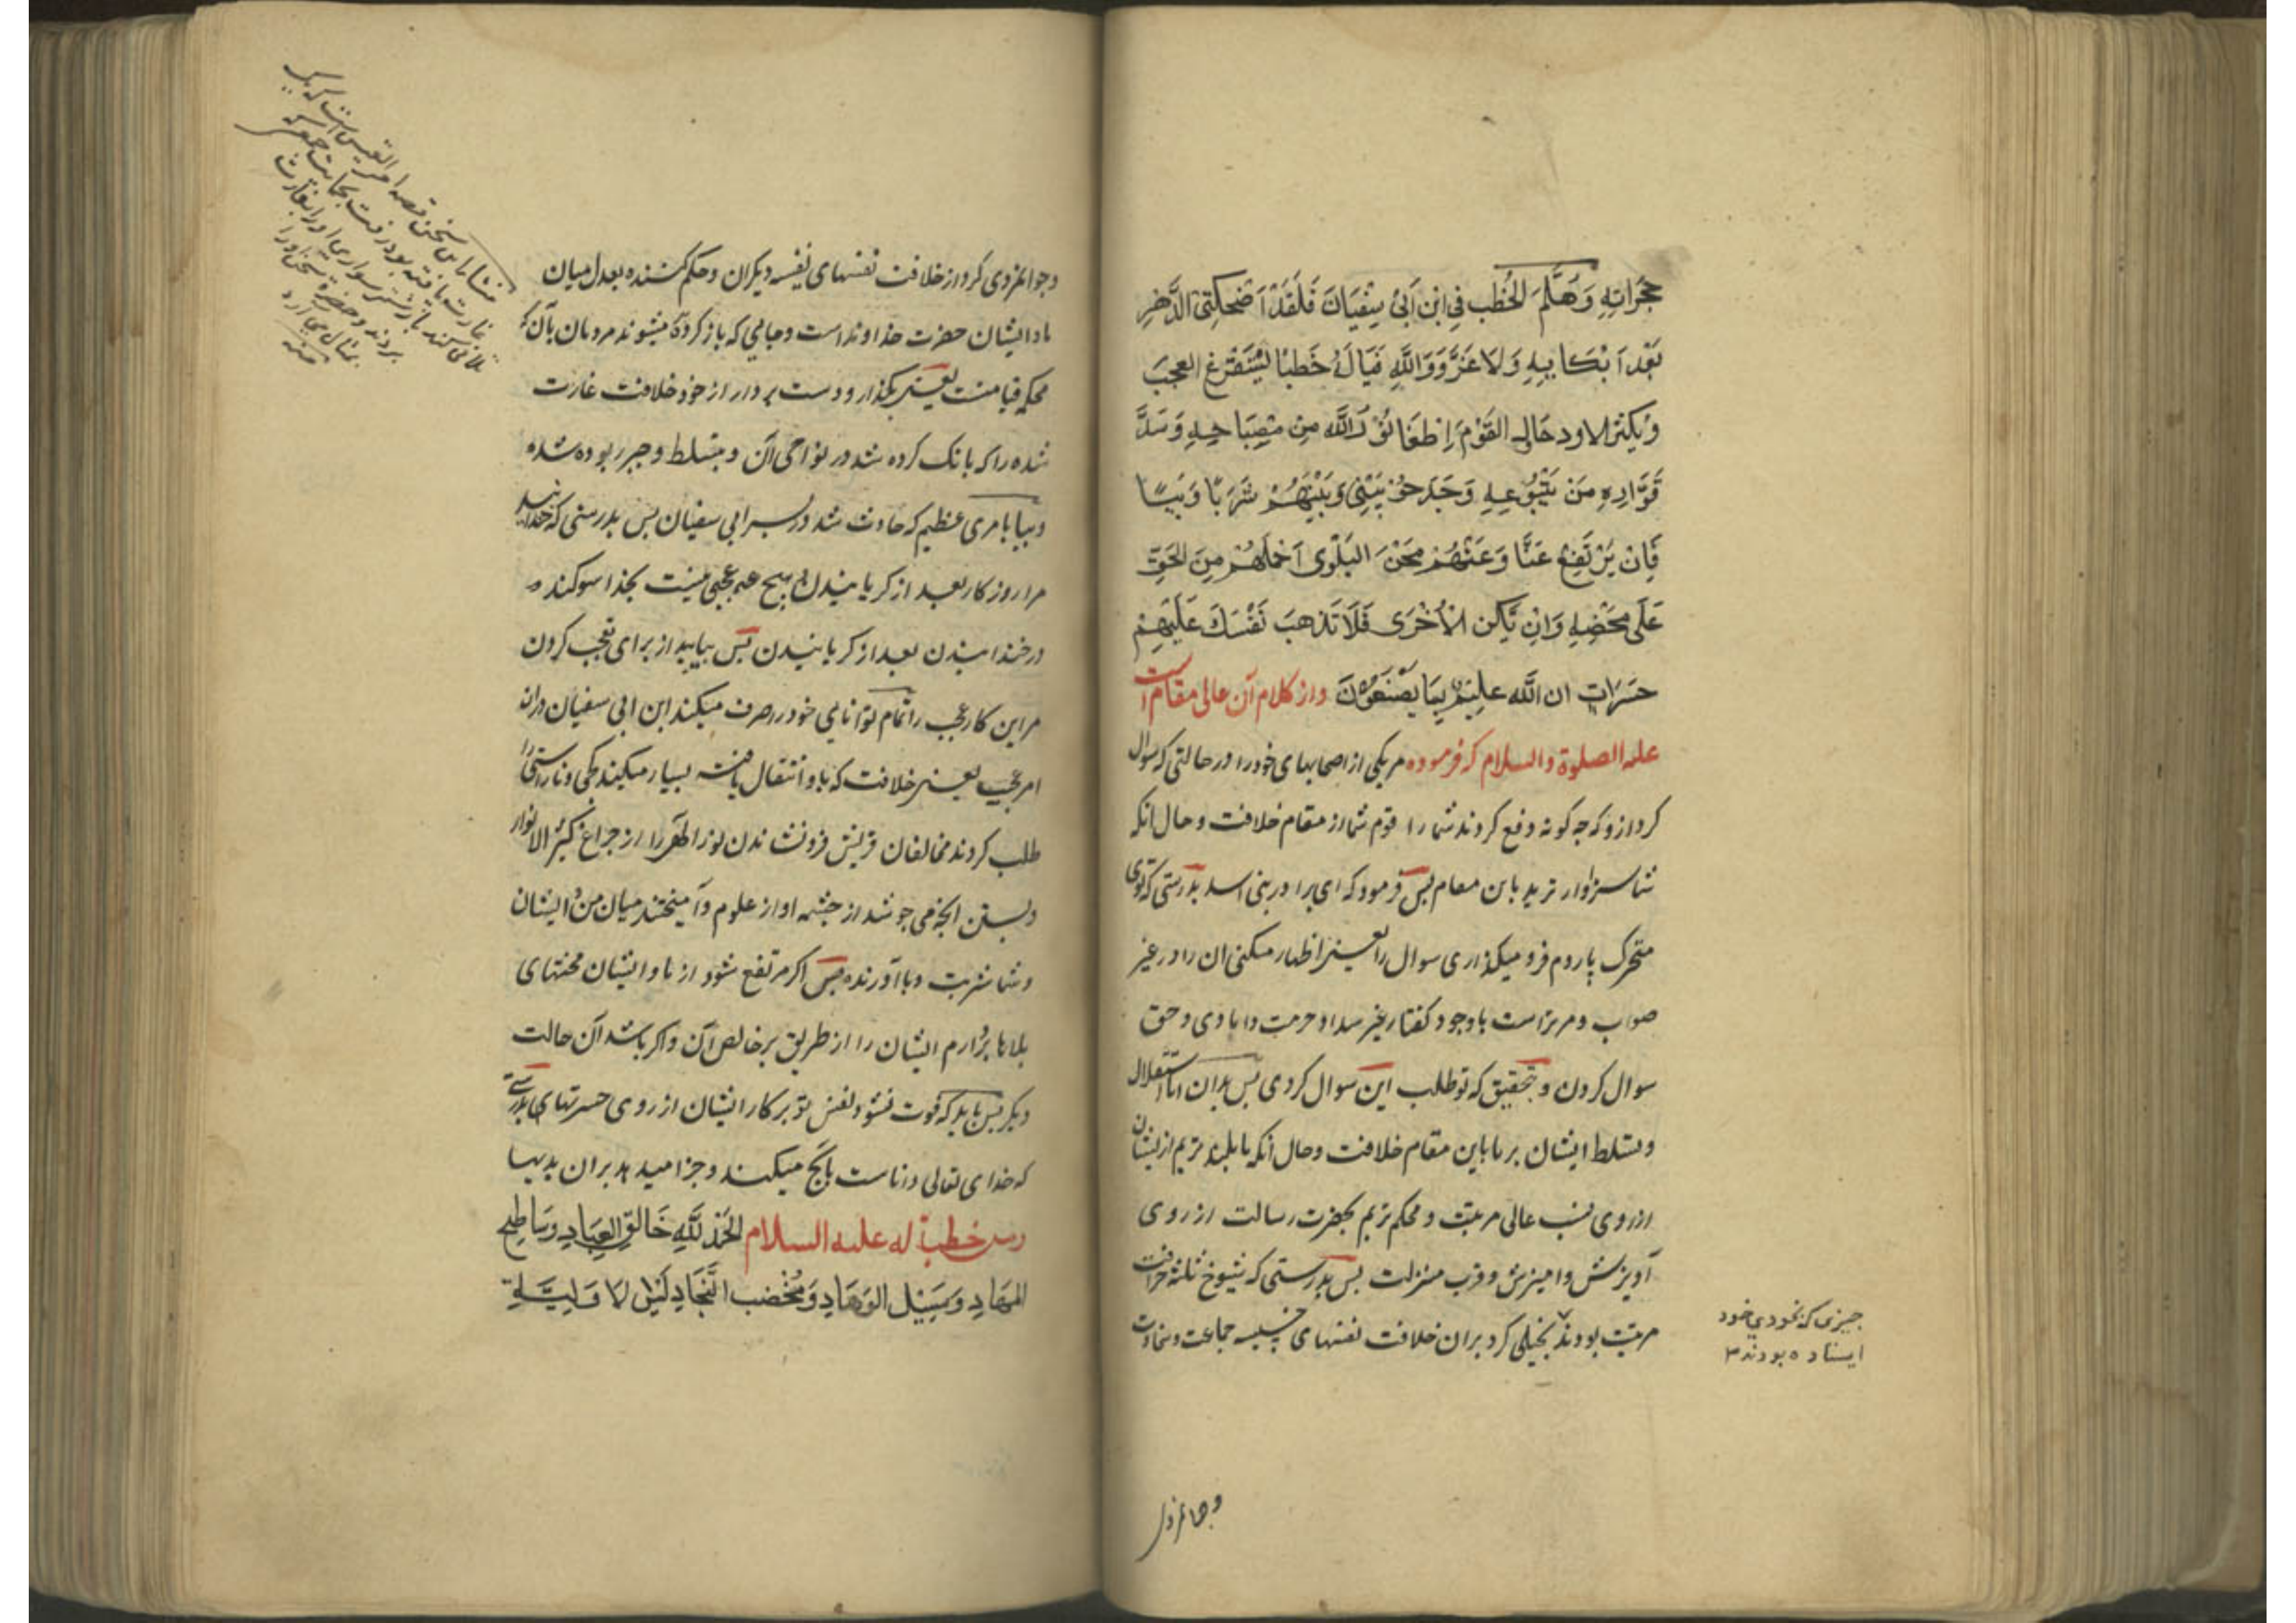 حجراته وهلم الخطب في ابن ابي سفيان فلقد اضحكني الدهر
بعد ابكايه ولا غرو والله فيا له خطبا يستفرغ العجب
ويكثر الاود حاول القوم اطفا نور الله من مصباحه وسد
فواره من ينبوعه وجدحوا بيني وبينهم شربا وبيا
فان يرتفع عنا وعنهم محن البلوى احملهم من الحق
على محضه وان تكن الاخرى فلا تذهب نفسك عليهم
حسرات ان الله عليم بما يصنعون واز كلام آن عالى مقام است
عليه الصلوة والسلام كه فرموده مر يكى از اصحابهاى خود را در حالتى كه سوال
كرد ازو كه چه كونه دفع كردند شما را قوم شما از مقام خلافت و حال انكه
شما سزاوار تريد باين مقام پس فرمود كه اى برادر بنى اسد بدرستى كه توى
متحرك پاردم فرو ميكذارى سوال را يعنى اظهار ميكنى ان را در غير
صواب و مر تراست باوجود كفتار غير سداد حرمت دامادى و حق
سوال كردن و بتحقيق كه تو طلب اين سوال كردى پس بدان اما استقلال
و تسلط ايشان بر ما باين مقام خلافت و حال انكه ما بلند تريم از ايشان
از روى نسب عالى مرتبت و محكم تريم بحضرت رسالت از روى
آويزش و اميزش و قرب منزلت پس بدرستى كه شيوخ ثلثه خرافت
مرتبت بودند بخيلى كرد بران خلافت نفسهاى خسيسه جماعت و سخاوت
چيزى كه بخودى خود
ايستاده بودند
وجوانمردى كرد از خلافت نفسهاى نفيسه ديكران و حكم كننده بعدل ميان
ما و ايشان حضرت خداوند است و جايى كه باز كرديده ميشوند مردمان بآن كه
محكمه قيامتست يعنى بكذار و دست بردار از خود خلافت غارت
شده را كه بانك كرده شد در نواحى آن و بتسلط و جبر ربوده شده
و بيا بامرى عظيم كه حادث شد در پسر ابى سفيان پس بدرستى كه خندانيد
مرا روزكار بعد از كريانيدن و هيچ عجبى نيست بخدا سوكند
در خندانيدن بعد از كريانيدن پس بياييد از براى تعجب كردن
مر اين كار عجب را تمام توانايى خود را صرف ميكند ابن ابى سفيان دران
امر عجيب يعنى خلافت كه باو انتقال يافته بسيار ميكند كجى و ناراستى را
طلب كردند مخالفان قريش فرونشاندن نور الهى را از چراغ كثير الانوار
و بستن انچه مى جوشد از چشمه او از علوم و آميختند ميان من و ايشان
و شما شربت وبا آورنده پس اكر مرتفع شود از ما و ايشان محنتهاى
بلاها بردارم ايشان را از طريق بر خالص آن و اكر باشد آن حالت
ديكر پس بايد كه فوت نشود نفس تو بر كار ايشان از روى حسرتهاى بدرستى
كه خداى تعالى داناست بانچه ميكنند و جزا ميدهد بران بديها
ومن خطبة له عليه السلام الحمد لله خالق العباد وساطح
المهاد ومسيل الوهاد ومخضب النجاد ليس لاوليته